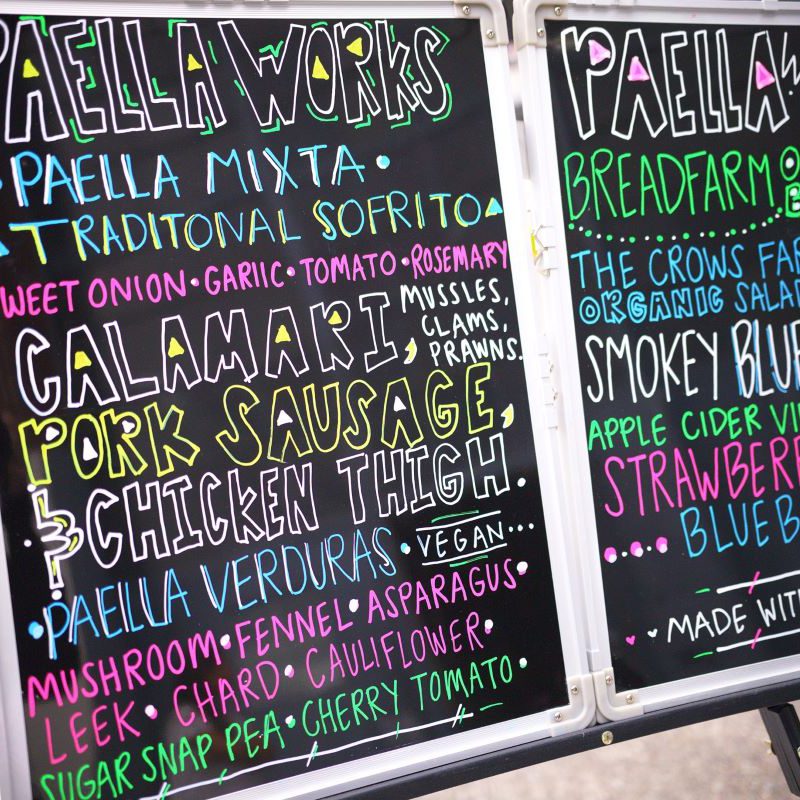 PAELLA WORKS
PAELLA MIXTA
TRADITONAL SOFRITO
SWEET ONION • GARLIC • TOMATO • ROSEMARY
CALAMARI, MUSSLES,
CLAMS,
PRAWNS.
PORK SAUSAGE,
& CHICKEN THIGH.
PAELLA VERDURAS • VEGAN...
MUSHROOM • FENNEL • ASPARAGUS •
LEEK • CHARD • CAULIFLOWER •
SUGAR SNAP PEA • CHERRY TOMATO •
PAELLA
BREADFARM
THE CROWS
ORGANIC
SMOKEY
APPLE CIDER
MADE